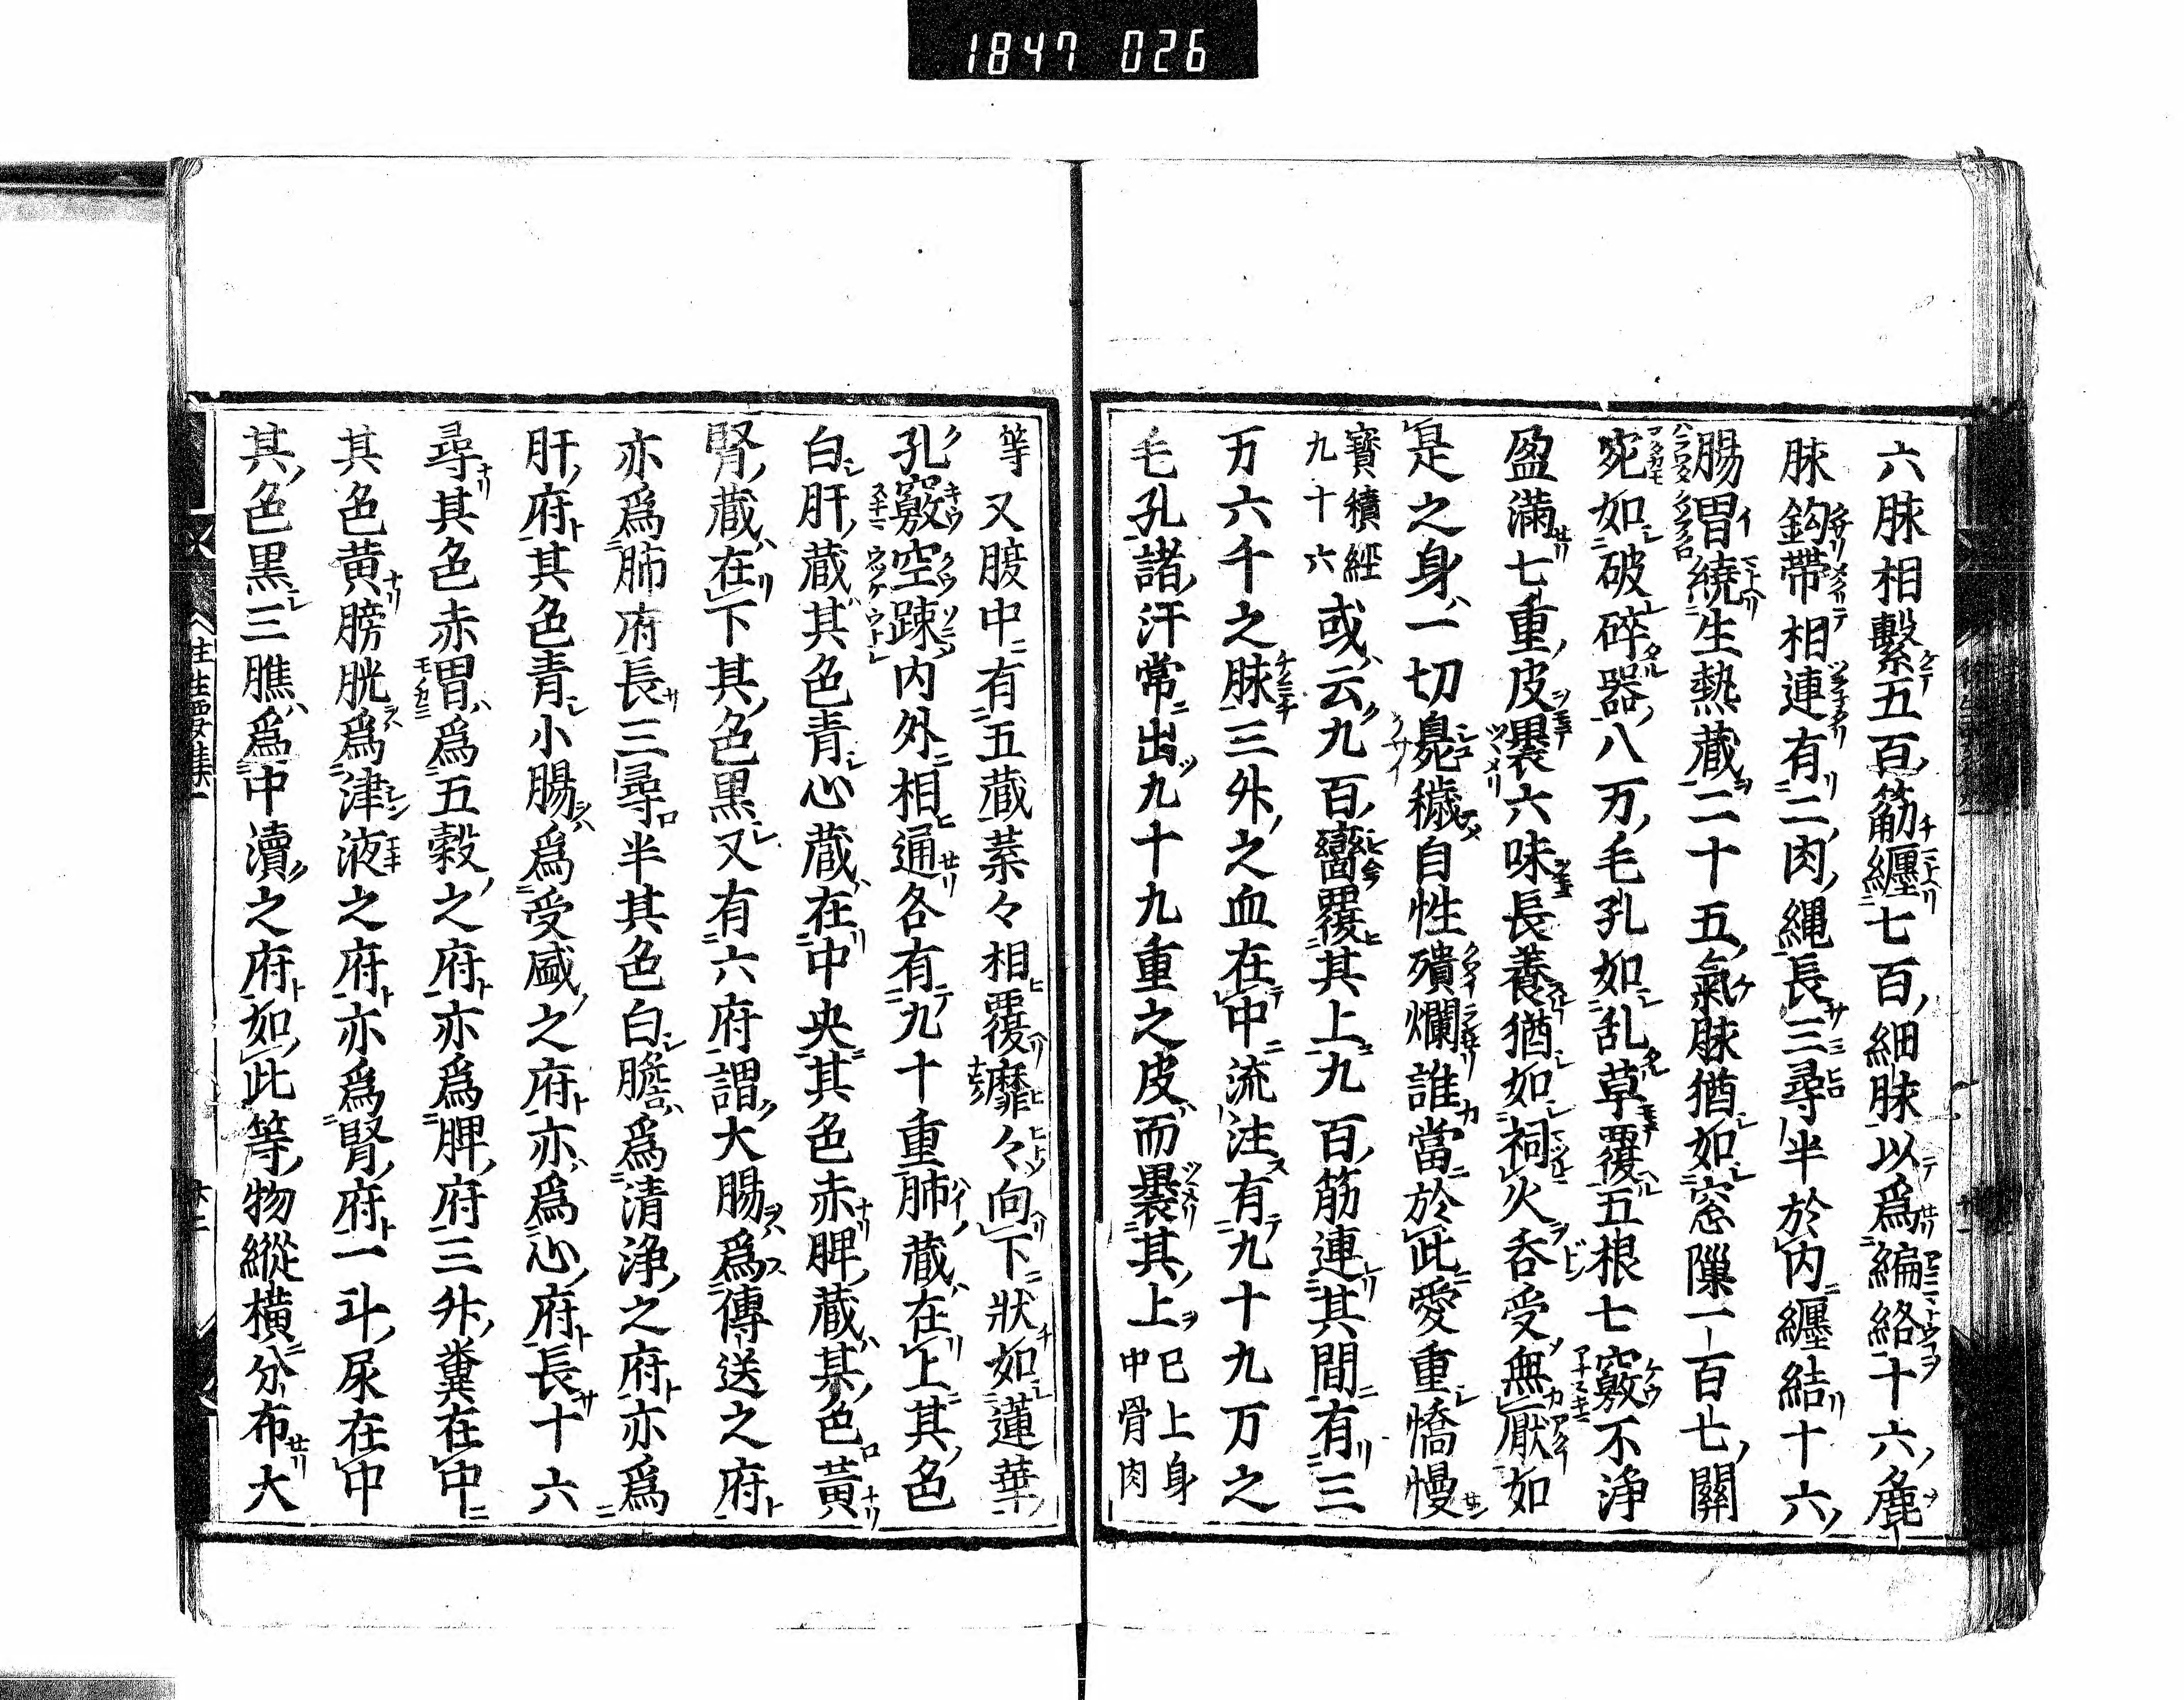 1847 026
六脉相繫五百筋纏七百細脉以為編絡十六麁
脉鈎帶相連有二肉縄長三尋半於内纏結十六
腸胃繞生熟蔵二十五氣脉猶如窓隟一百七關
宛如破碎器八万毛孔如乱草覆五根七竅不浄
盈満七重皮裹六味長養猶如祠火呑受無厭如
是之身一切臰穢自性殨爛誰當於此愛重憍慢
寳積經九十六或云九百臠覆其上九百筋連其間有三
万六千之脉三舛之血在中流注有九十九万之
毛孔諸汗常出九十九重之皮而裹其上已上身中骨肉
等又腹中有五蔵葉々相覆靡々向下狀如蓮華
孔竅空踈内外相通各有九十重肺蔵在上其色
白肝蔵其色青心蔵在中央其色赤脾蔵其色黃
腎蔵在下其色黒又有六府謂大腸為傳送之府
亦為肺府長三尋半其色白膽為清浄之府亦為
肝府其色青小膓為受盛之府亦為心府長十六
尋其色赤胃為五穀之府亦為脾府三舛糞在中
其色黄膀胱為津液之府亦為腎府一斗尿在中
其色黒三膲為中瀆之府如此等物縱橫分布大